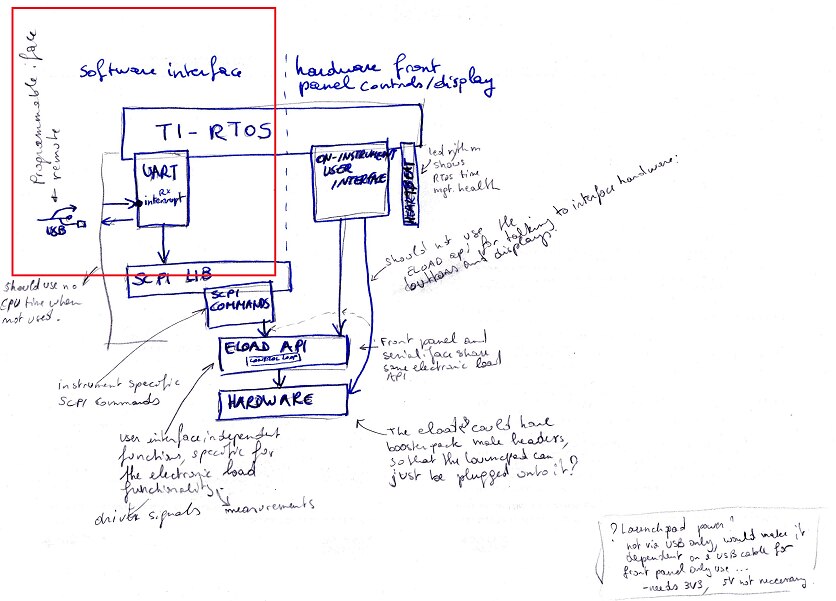 Programmable iface
remote
Software interface
hardware front
panel controls/display
TI-RTOS
UART
Rx
interrupt
USB
ON-INSTRUMENT
USER
INTERFACE
HEARTBEAT
led rythm
shows
RTOS time
mgt. health
should not use the
ELOAD api for talking to interface hardware:
buttons and displays.
SCPI LIB
SCPI
COMMANDS
should use no
CPU time when
not used.
ELOAD API
CONTROL LOOP
HARDWARE
Front panel and
serial iface share
same electronic load
API
instrument specific
SCPI commands
user interface independent
functions, specific for
the electronic load
functionality.
driver signals
measurements
The eload could have
boosterpack male headers,
so that the launchpad can
just be plugged onto it?
? Launchpad power?
not via USB only, would make it
dependent on a USB cable for
front panel only use ...
- needs 3V3, 5V not neccesary